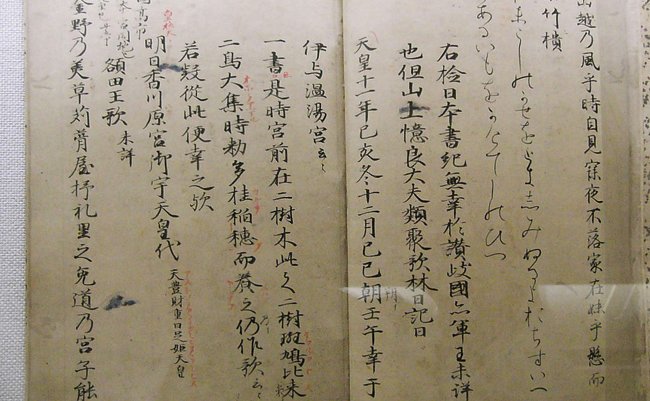 山越乃風乎時自見寐夜不落家在妹乎懸而
竹樻
まこしのかせをときしみぬるよおちすいへ
なるいもをかけてしのひつ
右檢日本書紀無幸於讃岐國亦軍王未詳
也但山上憶良大夫類聚歌林曰記曰
天皇十一年己亥冬十二月己巳朝壬午幸于
伊与温湯宮云々
一書是時宮前在二樹木此之二樹斑鳩比米
二鳥大集時勅多桂稲穂而養之仍作歌云々
若疑從此便幸之歟
明日香川原宮御宇天皇代 天豊財重日足姫天皇
額田王歌 未詳
金野乃美草苅葺屋杼礼里之兎道乃宮子能